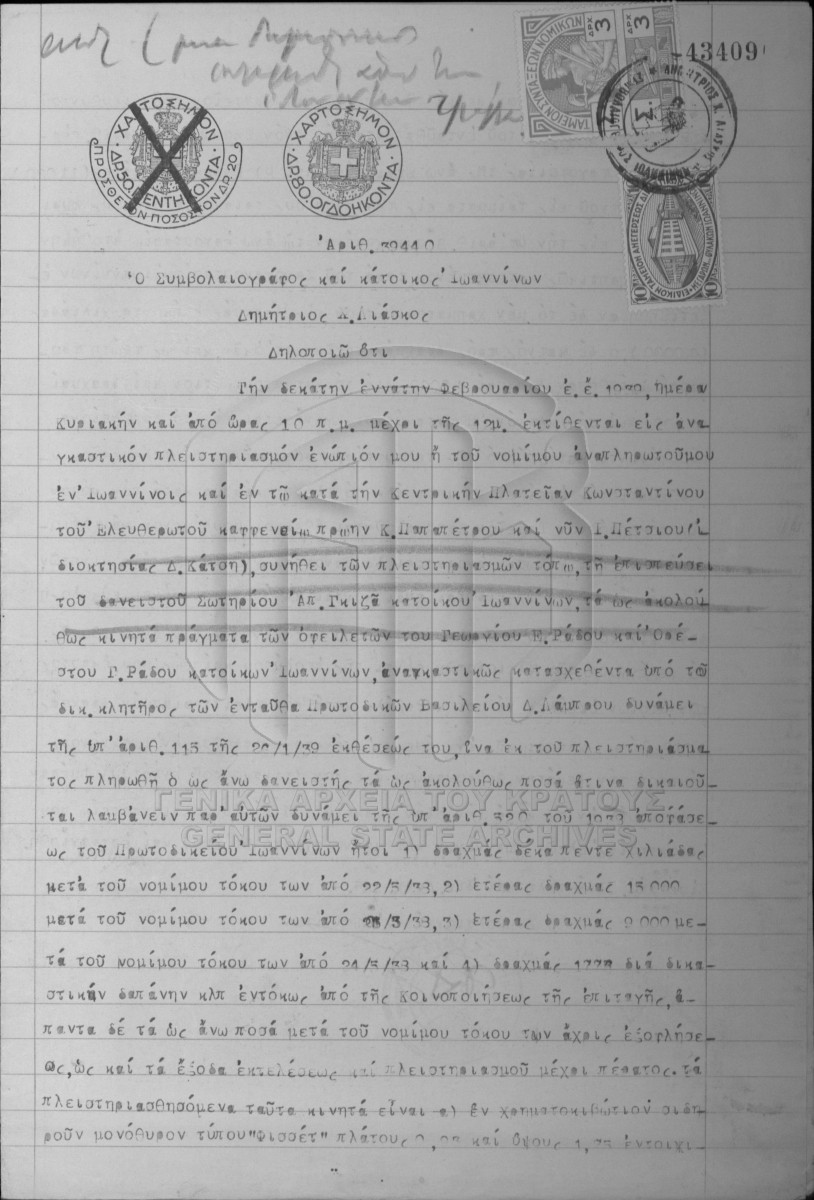 ΤΑΜΕΙΟΝ ΣΥΝΤΑΞΕΩΝ ΝΟΜΙΚΩΝ
ΔΡΧ 3
ΔΡΧ 3
-43409
ΧΑΡΤΟΣΗΜΟΝ
ΔΡ.50.ΠΕΝΤΗΚΟΝΤΑ
ΠΡΟΣΘΕΤΟΝ ΠΟΣΟΣΤΟΝ ΔΡ.20
ΧΑΡΤΟΣΗΜΟΝ
ΔΡ.80.ΟΓΔΟΗΚΟΝΤΑ
Ἀριθ.39440
Ὁ Συμβολαιογράφος καί κάτοικος Ἰωαννίνων
Δημήτριος Χ.Λιάσκος
Δηλοποιῶ ὅτι
Τήν δεκάτην ἐννάτην Φεβρουαρίου ἐ.ἔ. 1939, ἡμέρα
Κυριακήν καί ἀπό ὥρας 10 π.μ. μέχρι τῆς 12μ. ἐκτίθενται είς ἀνα
γκαστικόν πλειστηριασμόν ἐνώπιόν μου ἤ τοῦ νομίμου ἀναπληρωτοῦμου
ἐν Ἰωαννίνοις καί ἐν τῶ κατά τήν Κεντρικήν Πλατεῖαν Κωνσταντίνου
τοῦ Ἐλευθερωτοῦ καφενείω πρώην Κ.Παπαπέτρου καί νῦν Ι.Πέτσιου(ἰ
διοκτησίας Δ.Κάτση), συνήθει τῶν πλειστηριασμῶν τόπω, τῆ ἐπισπεύσει
τοῦ δανειστοῦ Σωτηρίου Ἀπ.Γκιζᾶ κατοίκου Ἰωαννίνων, τά ὡς ἀκολού
θως κινητά πράγματα τῶν ὀφειλετῶν του Γεωργίου Ε.Ράδου καί Ὀρέ-
στου Γ.Ράδου κατοίκων Ἰωαννίνων, ἀναγκαστικῶς κατασχεθέντα ὑπό τοῦ
δικ.κλητῆρος τῶν ἐνταῦθα Πρωτοδικῶν Βασιλείου Δ.Λάμπρου δυνάμει
τῆς ὑπ' ἀριθ. 115 τῆς 20/1/39 ἐκθέσεώς του, ἵνα ἐκ τοῦ πλειστηριάσμα
τος πληρωθῆ ὁ ὡς ἄνω δανειστής τά ὡς ἀκολούθως ποσά ἅτινα δικαιοῦ
ται λαμβάνειν παρ' αὐτῶν δυνάμει τῆς ὑπ' ἀριθ. τοῦ 1933 ἀποφάσε
ως τοῦ Πρωτοδικείου Ἰωαννίνων ἤτοι 1) δραχμάς δέκα πεντε χιλιάδας
μετά τοῦ νομίμου τόκου των ἀπό 22/5/33, 2) ἑτέρας δραχμάς 15000
μετά τοῦ νομίμου τόκου των ἀπό /5/33, 3) ἑτέρας δραχμάς 9000 με-
τά τοῦ νομίμου τόκου των ἀπό 21/5/33 καί 4) δραχμάς διά δικα-
στικήν δαπάνην κλπ ἐντόκως ἀπό τῆς κοινοποιήσεως τῆς ἐπιταγῆς, ἅ-
παντα δέ τά ὡς ἄνω ποσά μετά τοῦ νομίμου τόκου των ἄχρις ἐξοφλήσε-
ως, ὡς καί τά ἔξοδα ἐκτελέσεως καί πλειστηριασμοῦ μέχρι πέρατος. τά
πλειστηριασθησόμενα ταῦτα κινητά εἶναι α) ἕν χρηματοκιβώτιον σιδη
ροῦν μονόθυρον τύπου "Φισσέτ" πλάτους καί ὕψους 1,35 ἐντοιχι-
ΓΕΝΙΚΑ ΑΡΧΕΙΑ ΤΟΥ ΚΡΑΤΟΥΣ
GENERAL STATE ARCHIVES